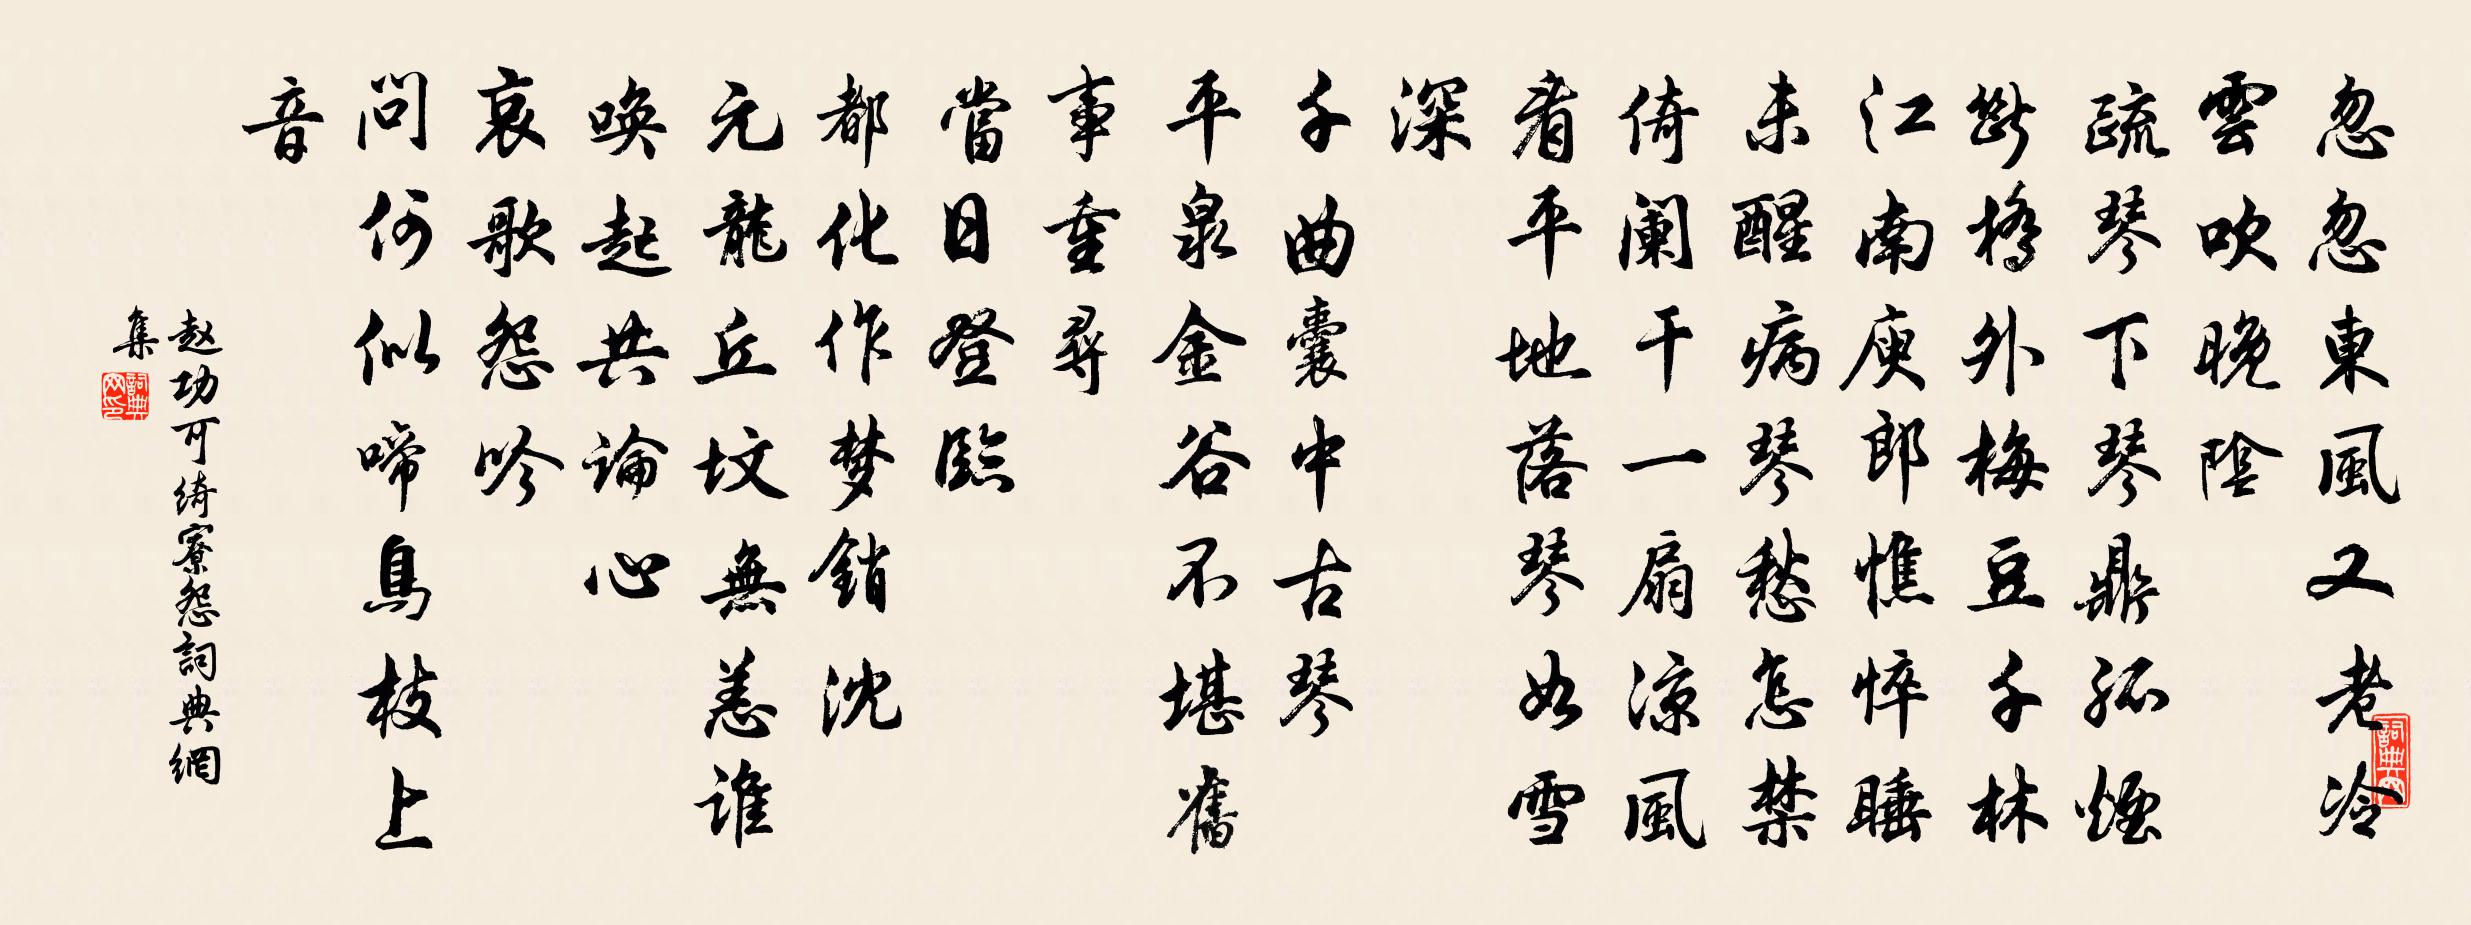 忽忽東風又老冷
雲吹晚陰
疏琴下琴鼎孤煙
斷橋外梅豆千林
江南庾郎憔悴睡
未醒病琴愁怎禁
倚闌干一扇涼風
看平地落琴如雪
深
千曲囊中古琴
平泉金谷不堪舊
事重尋
當日登臨
都化作梦銷沈
元龍丘坟無恙誰
喚起共論心
哀歌怨吟
問何似啼鳥枝上
音
赵功可绮寮怨詞典網
集
詞典网印
詞典网